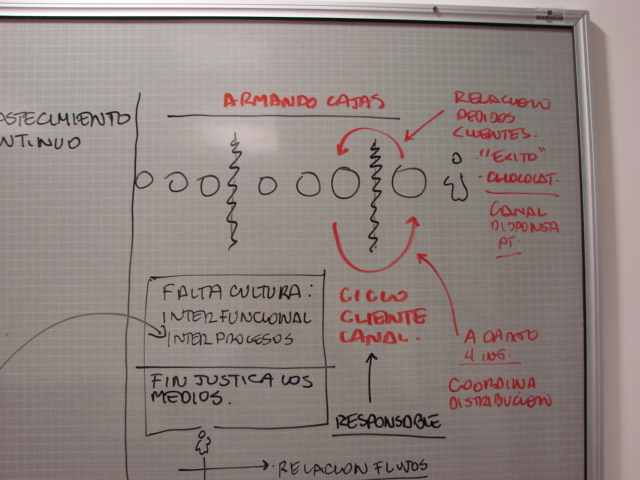 ASTECIMIENTO
ONTINUO
ARMANDO CAJAS
RELACION
PEDIDOS
CLIENTES.
"EXITO"
- CHOCOLAT.
CANAL
PT.
FALTA CULTURA:
INTERFUNCIONAL
INTERPROCESOS
FIN JUSTICA LOS
MEDIOS.
CICLO
CLIENTE
CANAL.
RESPONSABLE
4 ING.
COORDINA
DISTRIBUCION
RELACION FLUJOS